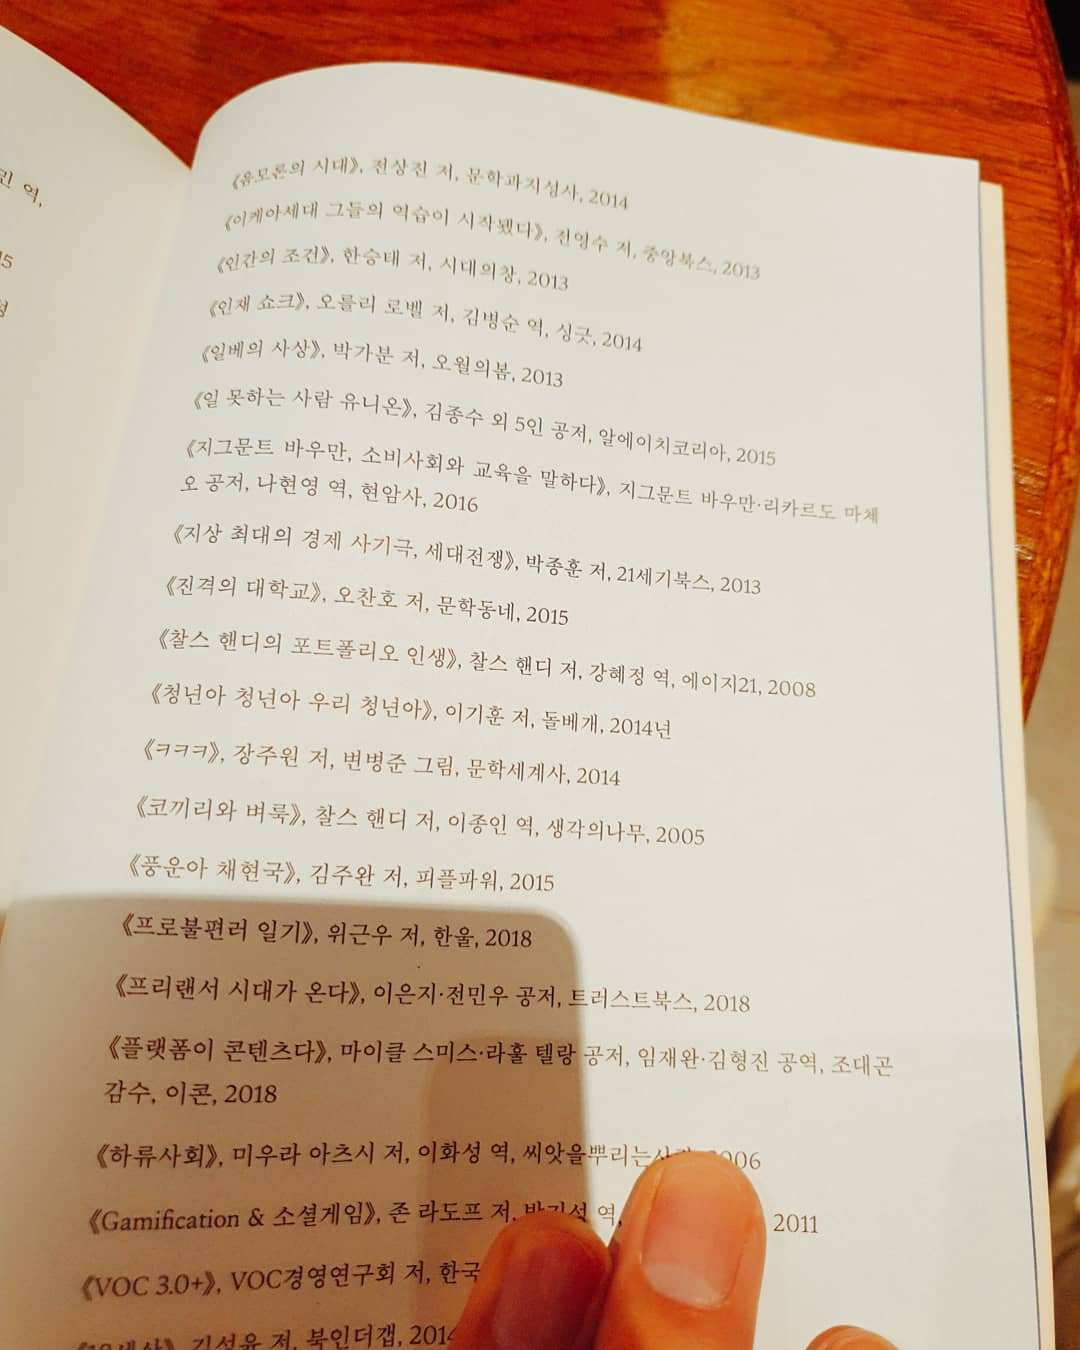 린 역,
15
《음모론의 시대》, 전상진 저, 문학과지성사, 2014
《이케아세대 그들의 역습이 시작됐다》, 전영수 저, 중앙북스, 2013
《인간의 조건》, 한승태 저, 시대의창, 2013
《인재 쇼크》, 오를리 로벨 저, 김병순 역, 싱긋, 2014
《일베의 사상》, 박가분 저, 오월의봄, 2013
《일 못하는 사람 유니온》, 김종수 외 5인 공저, 알에이치코리아, 2015
《지그문트 바우만, 소비사회와 교육을 말하다》, 지그문트 바우만·리카르도 마체
오 공저, 나현영 역, 현암사, 2016
《지상 최대의 경제 사기극, 세대전쟁》, 박종훈 저, 21세기북스, 2013
《진격의 대학교》, 오찬호 저, 문학동네, 2015
《찰스 핸디의 포트폴리오 인생》, 찰스 핸디 저, 강혜정 역, 에이지21, 2008
《청년아 청년아 우리 청년아》, 이기훈 저, 돌베개, 2014년
《ㅋㅋㅋ》, 장주원 저, 변병준 그림, 문학세계사, 2014
《코끼리와 벼룩》, 찰스 핸디 저, 이종인 역, 생각의나무, 2005
《풍운아 채현국》, 김주완 저, 피플파워, 2015
《프로불편러 일기》, 위근우 저, 한울, 2018
《프리랜서 시대가 온다》, 이은지·전민우 공저, 트러스트북스, 2018
《플랫폼이 콘텐츠다》, 마이클 스미스·라훌 텔랑 공저, 임재완·김형진 공역, 조대곤
감수, 이콘, 2018
《하류사회》, 미우라 아츠시 저, 이화성 역, 씨앗을뿌리는
《Gamification & 소셜게임》, 존 라도프 저, 역, 2011
《VOC 3.0+》, VOC경영연구회 저, 한국
저, 북인더갭, 2014